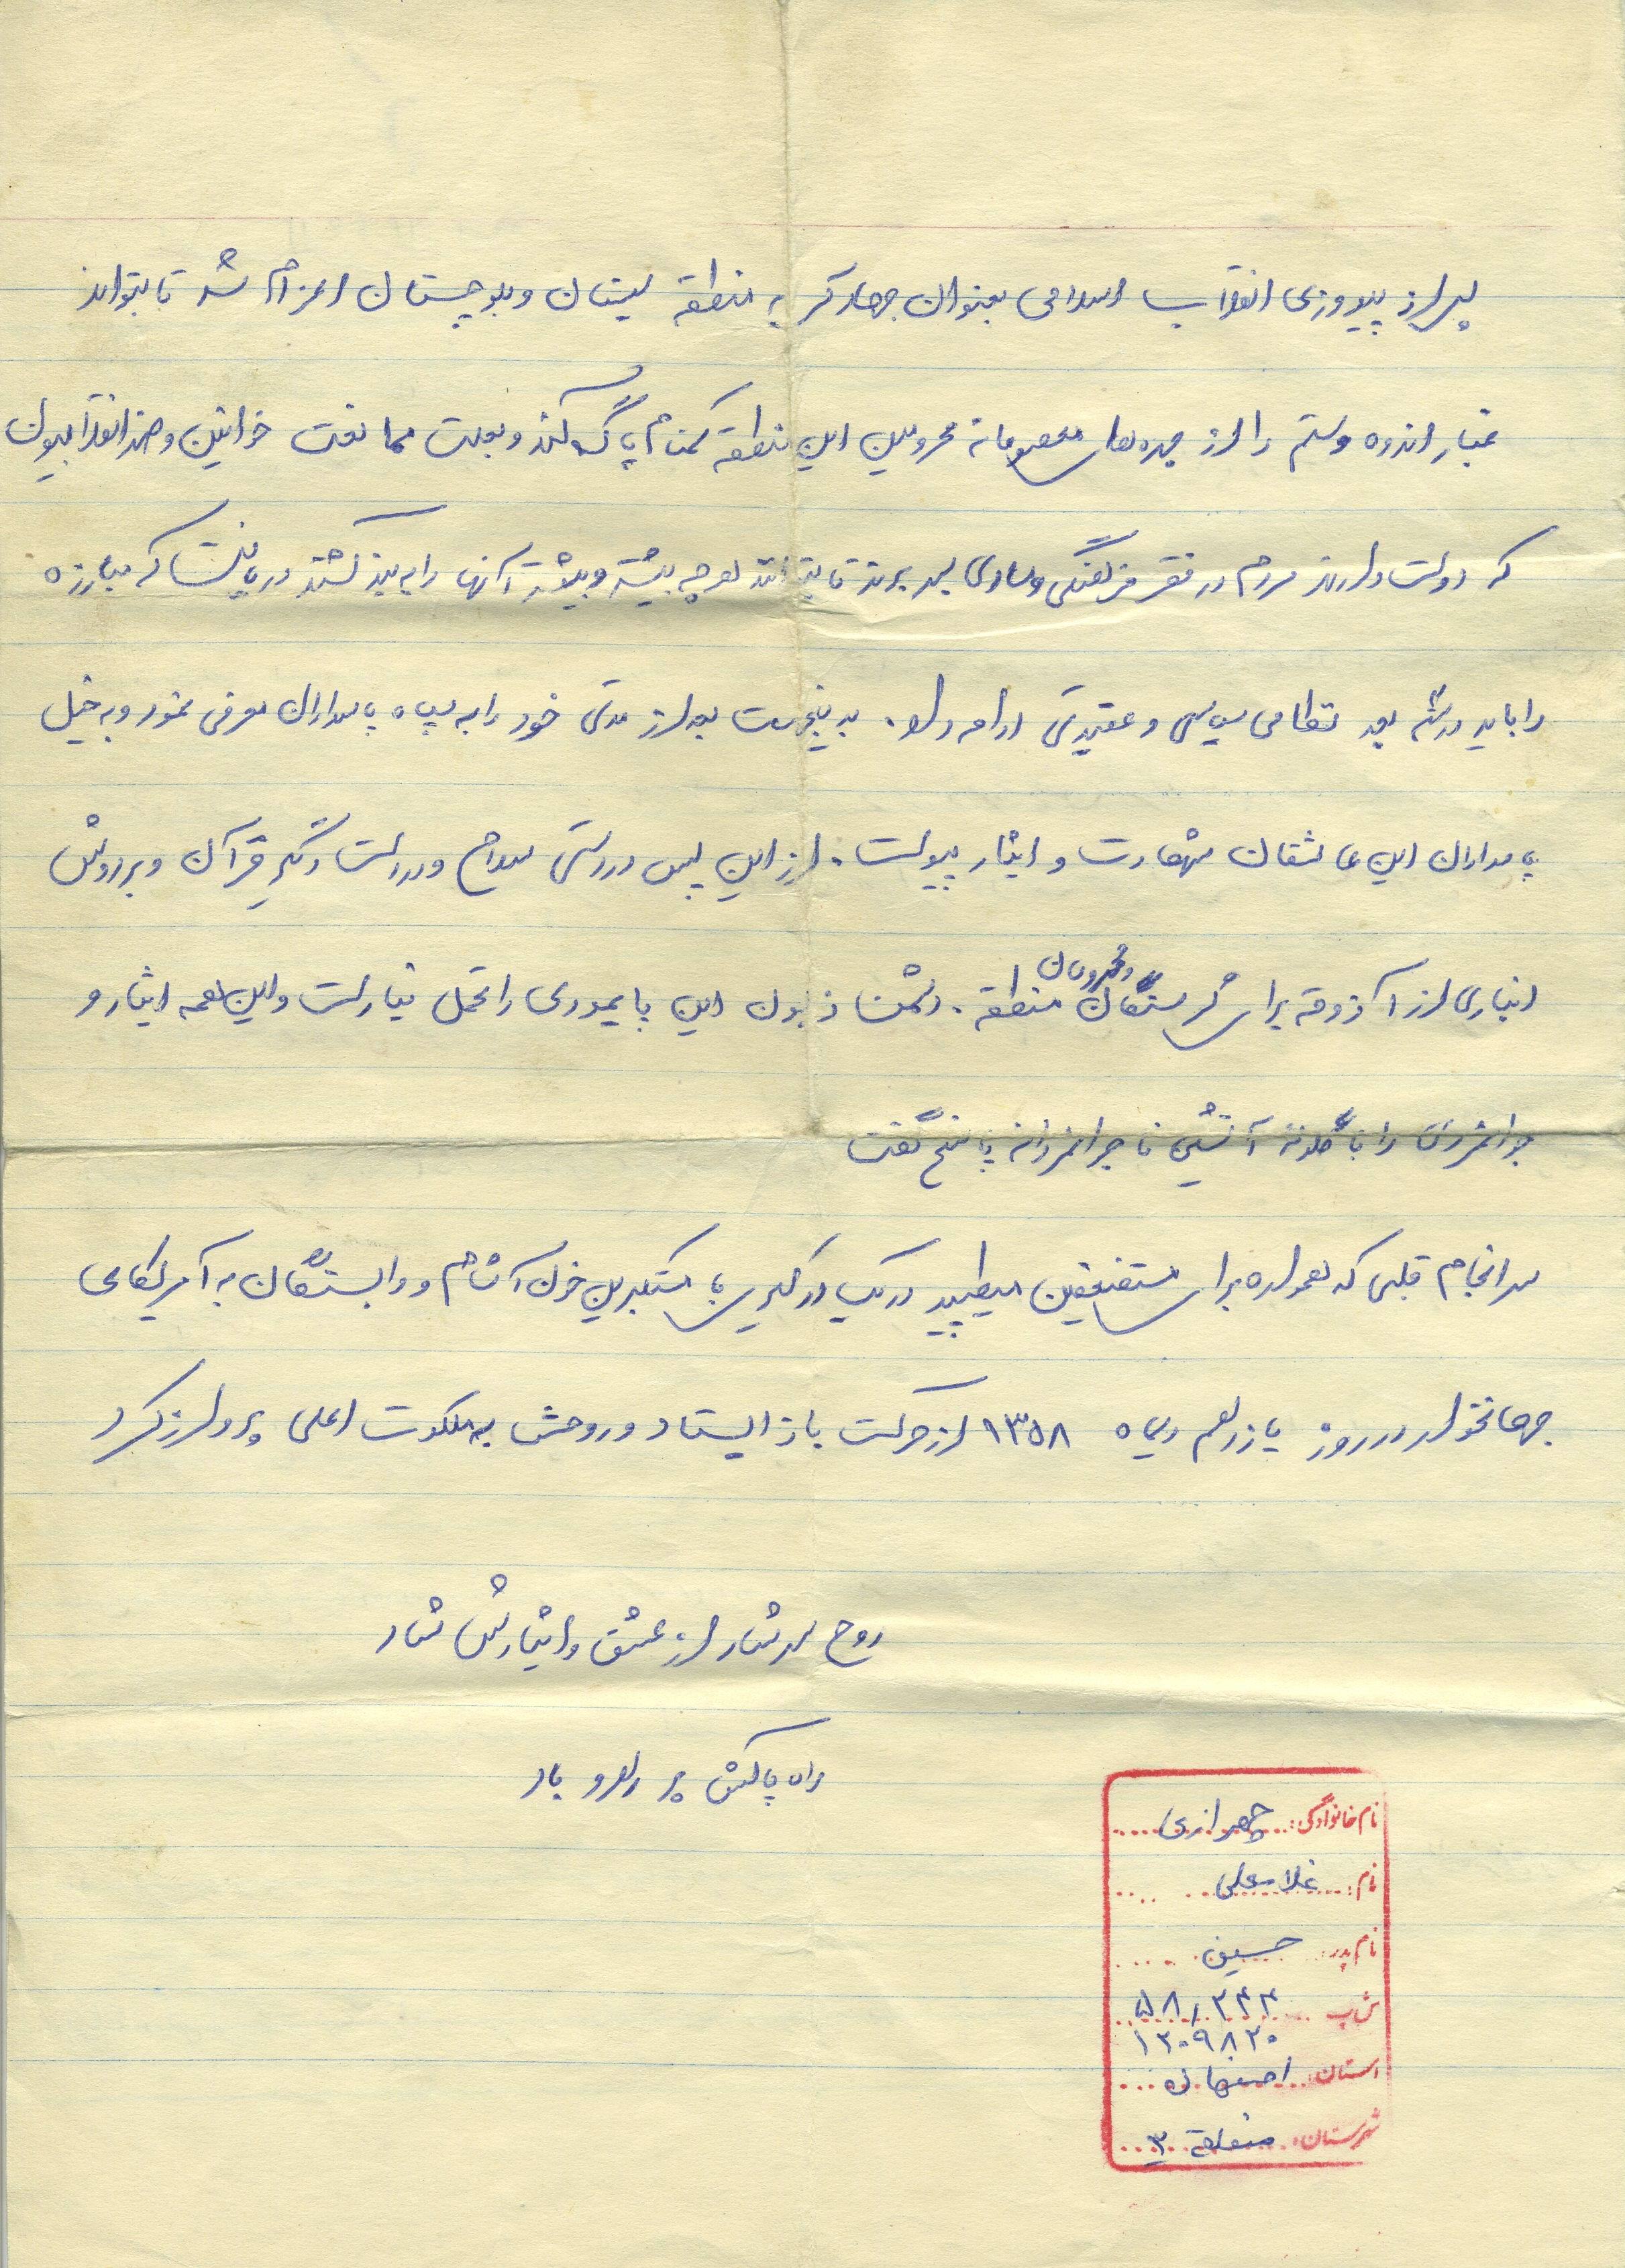 پس از پیروزی انقلاب اسلامی بعنوان جهادگر به منطقه سیستان و بلوچستان اعزام شد تا بتواند
غبار اندوه و ستم را از چهره‌های معصومانه محرومین این منطقه گمنام پاک کند و بعلت ممانعت خوانین و ضد انقلابیون
که دوست دارند مردم در فقر فرهنگی و مادی بسر برند تا بتوانند هر چه بیشتر و بیشتر آنها را به بند کشند دریافت که مبارزه
را باید در سه بعد نظامی سیاسی و عقیدتی ادامه داد. بدینجهت بعد از مدتی خود را به سپاه پاسداران معرفی نمود و به خیل
پاسداران این عاشقان شهادت و ایثار پیوست. از این پس در دستی سلاح و در دست دیگر قرآن و بر دوشش
انباری از آذوقه برای گرسنگان و محرومان منطقه. دشمن زبون این پایمردی را تحمل نیارست و این همه ایثار و
جوانمردی را با گلوله آتشین ناجوانمردانه پاسخ گفت
سرانجام قلبی که همواره برای مستضعفین میطپید در یک درگیری با مستکبرین خون آشام و وابستگان به آمریکای
جهانخوار در روز یازدهم دیماه ۱۳۵۸ از حرکت باز ایستاد و روحش به ملکوت اعلی پرواز کرد
روح سرشار از عشق و ایثارش شاد
راه پاکش پر رهرو باد
نام خانوادگی: چهرازی
نام: غلامعلی
نام پدر: حسین
ش پ ۵۸٫۲۴۴
۱۲۰۹۸۲۰
استان: اصفهان
شهرستان: منطقه ۳